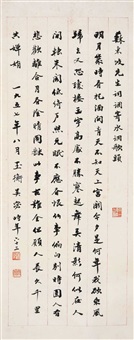 蘇東坡先生詞調寄水調歌頭
明月幾時有把酒問青天不知天上宮闕今夕是何年我欲乘風
歸去又恐瓊樓玉宇高處不勝寒起舞弄清影何似在人
間轉朱閣低綺戶照無眠不應有恨何事偏向別時圓人有
悲歡離合月有陰晴圓缺此事古難全但願人長久千里
共嬋娟 一九五七年八月 時年八十二